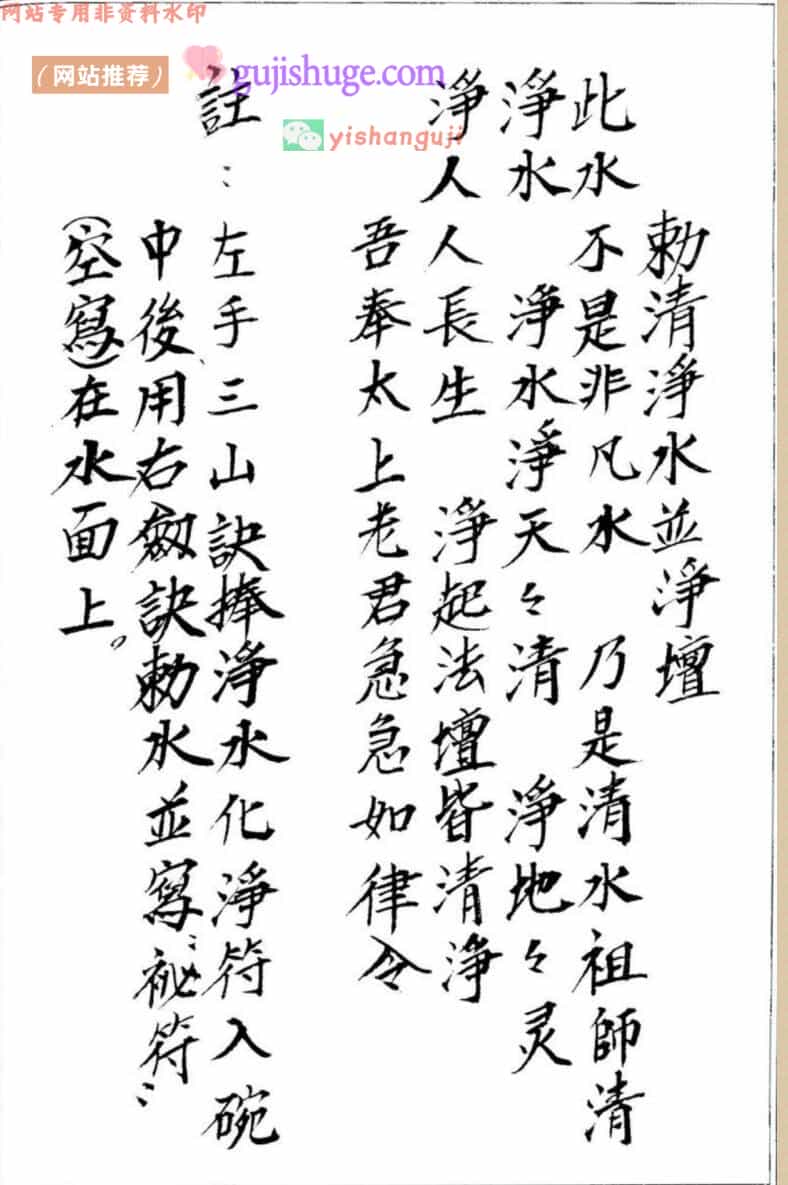 网站专用非资料水印
（网站推荐）
gujishuge.com
yishanguji
勅清淨水並淨壇
此水不是非凡水 乃是清水祖師清
淨水 淨水淨天々清 淨地々灵
淨人人長生 淨起法壇皆清淨
吾奉太上老君急急如律令
註：左手三山訣捧淨水化淨符入碗
中後用右劔訣勅水並寫：祕符：
（空寫）在水面上。